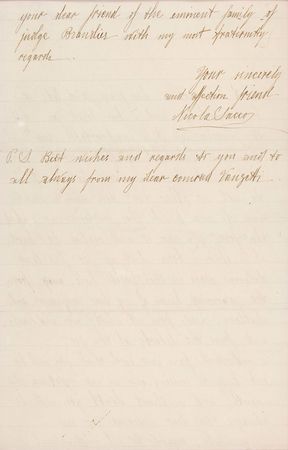 your dear friend of the eminent family of
judge Brandies with my most fraternity
regards.
Your sincerely
and affection friend
Nicola Sacco
P. S. Best wishes and regards to you and to
all always from my dear comred Vanzetti.